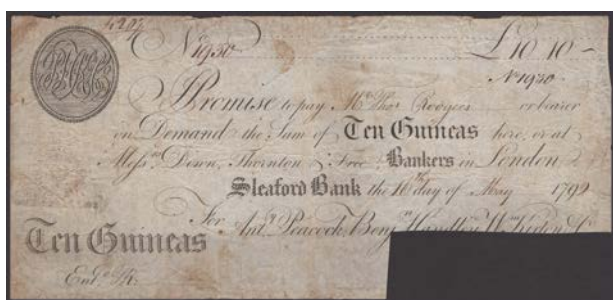 No 1930 £10 10 –
No 1930
I Promise to pay Mr. Thos. or bearer
on Demand the Sum of Ten Guineas here, or at
Messrs. Down, Thornton & Free Bankers in London
Sleaford Bank the 16th day of May 1799
For Anty. Peacock, Benjn. Handley, Wm. Kirton & Co.
Ten Guineas
Entd.